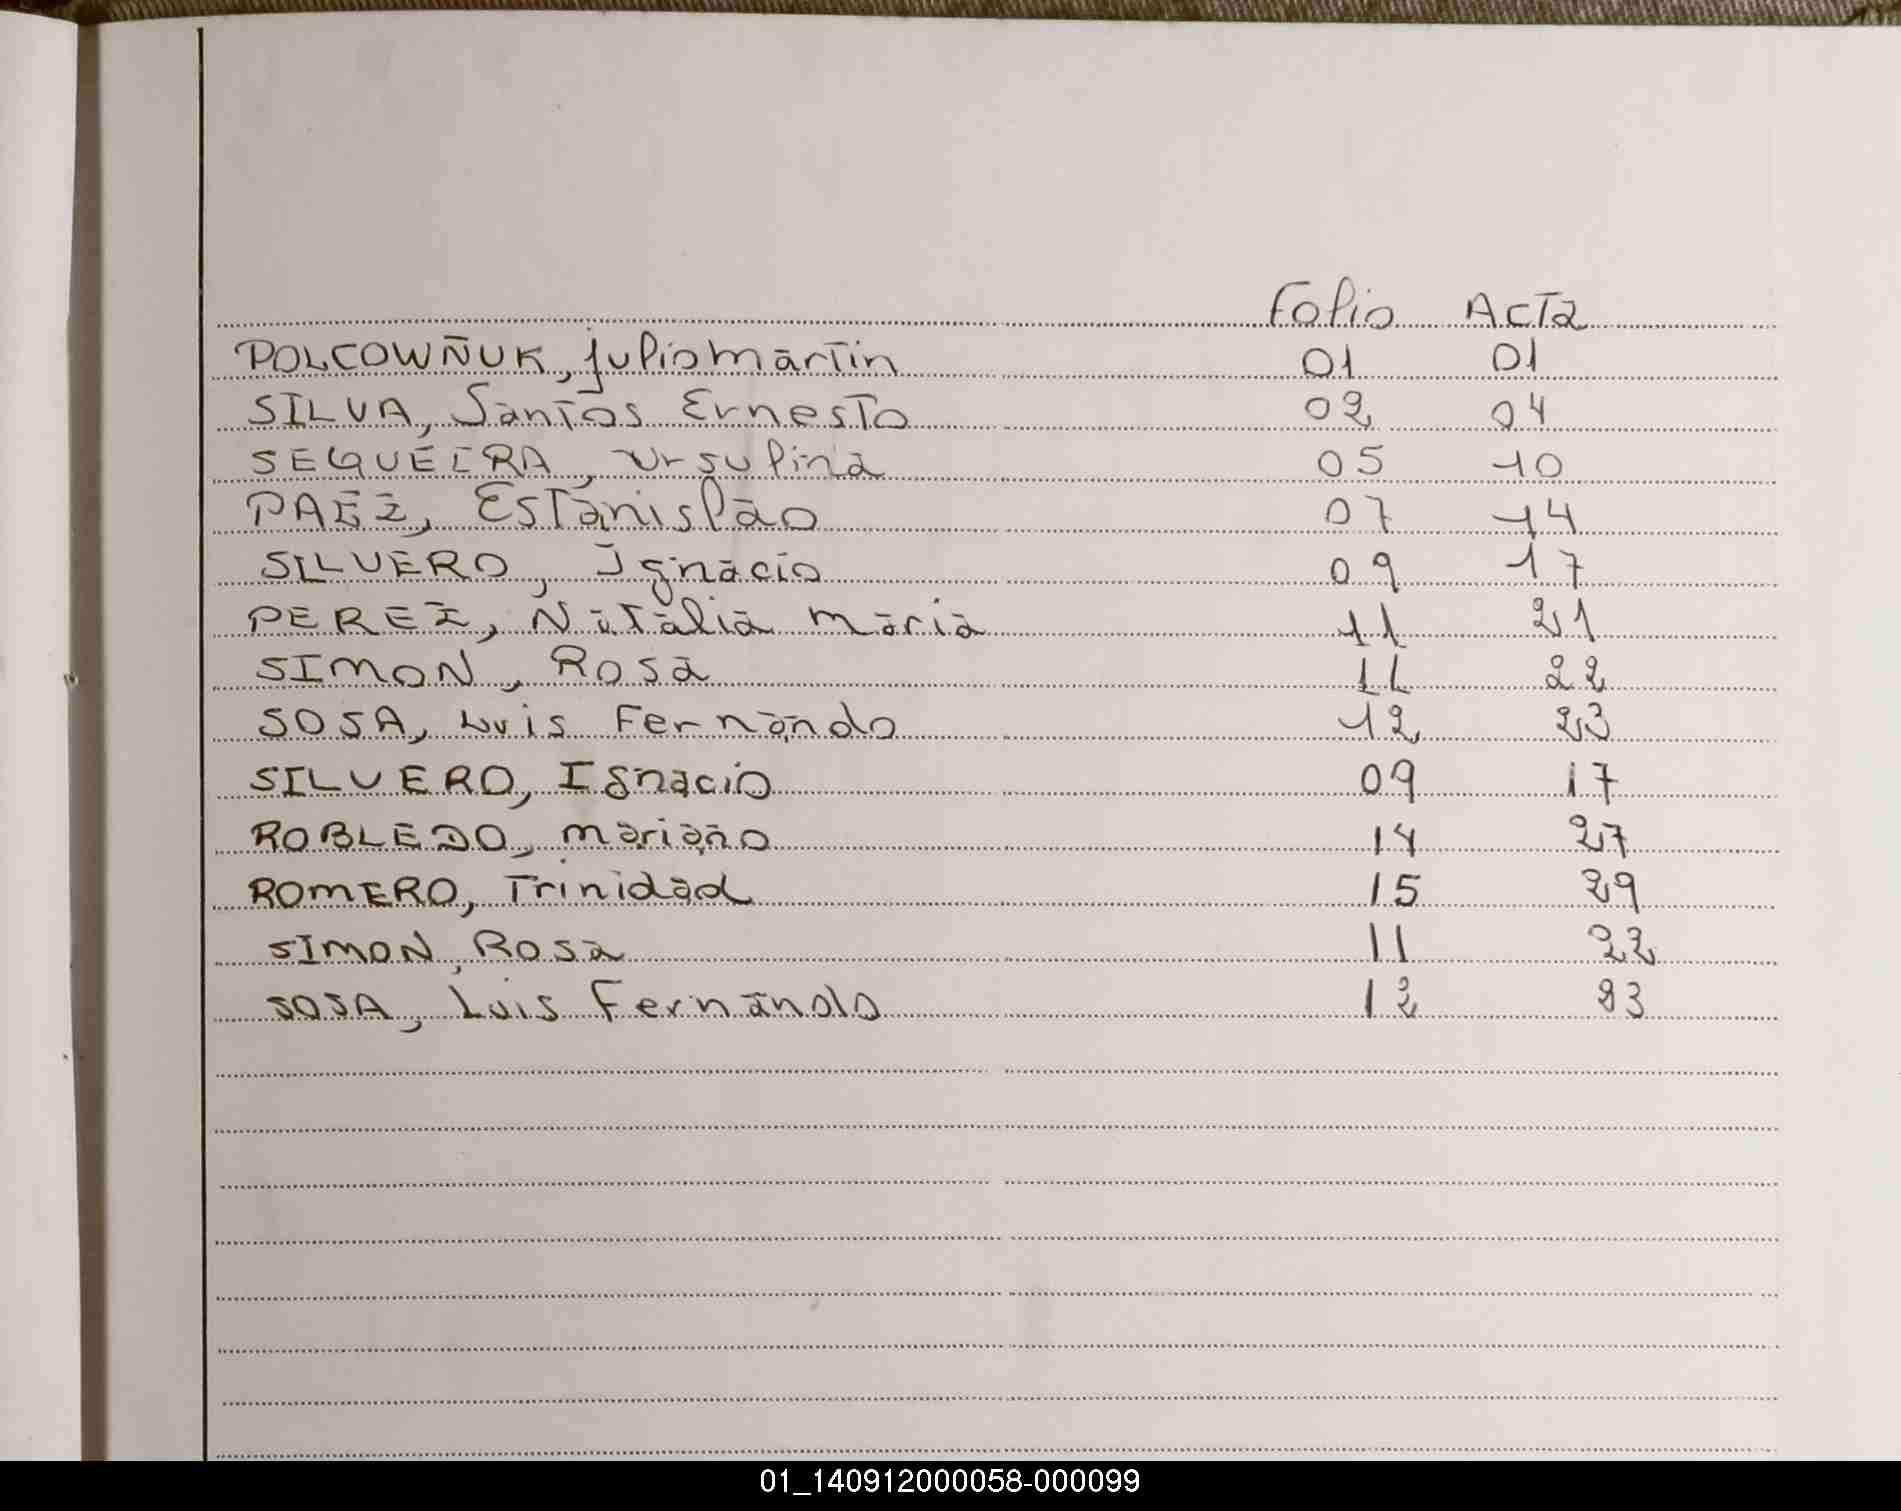 Folio Acta
POLCOWÑUK, Julio martin 01 01
SILVA, Santos Ernesto 02 04
SEQUEIRA, Ursulina 05 10
PAEZ, Estanislao 07 14
SILVERO, Ignacio 09 17
PEREZ, Natalia maria 11 21
SIMON, Rosa 11 22
SOSA, Luis Fernando 12 23
SILVERO, Ignacio 09 17
ROBLEDO, mariano 14 27
ROMERO, Trinidad 15 29
SIMON, Rosa 11 22
SOSA, Luis Fernando 12 23
01_140912000058-000099